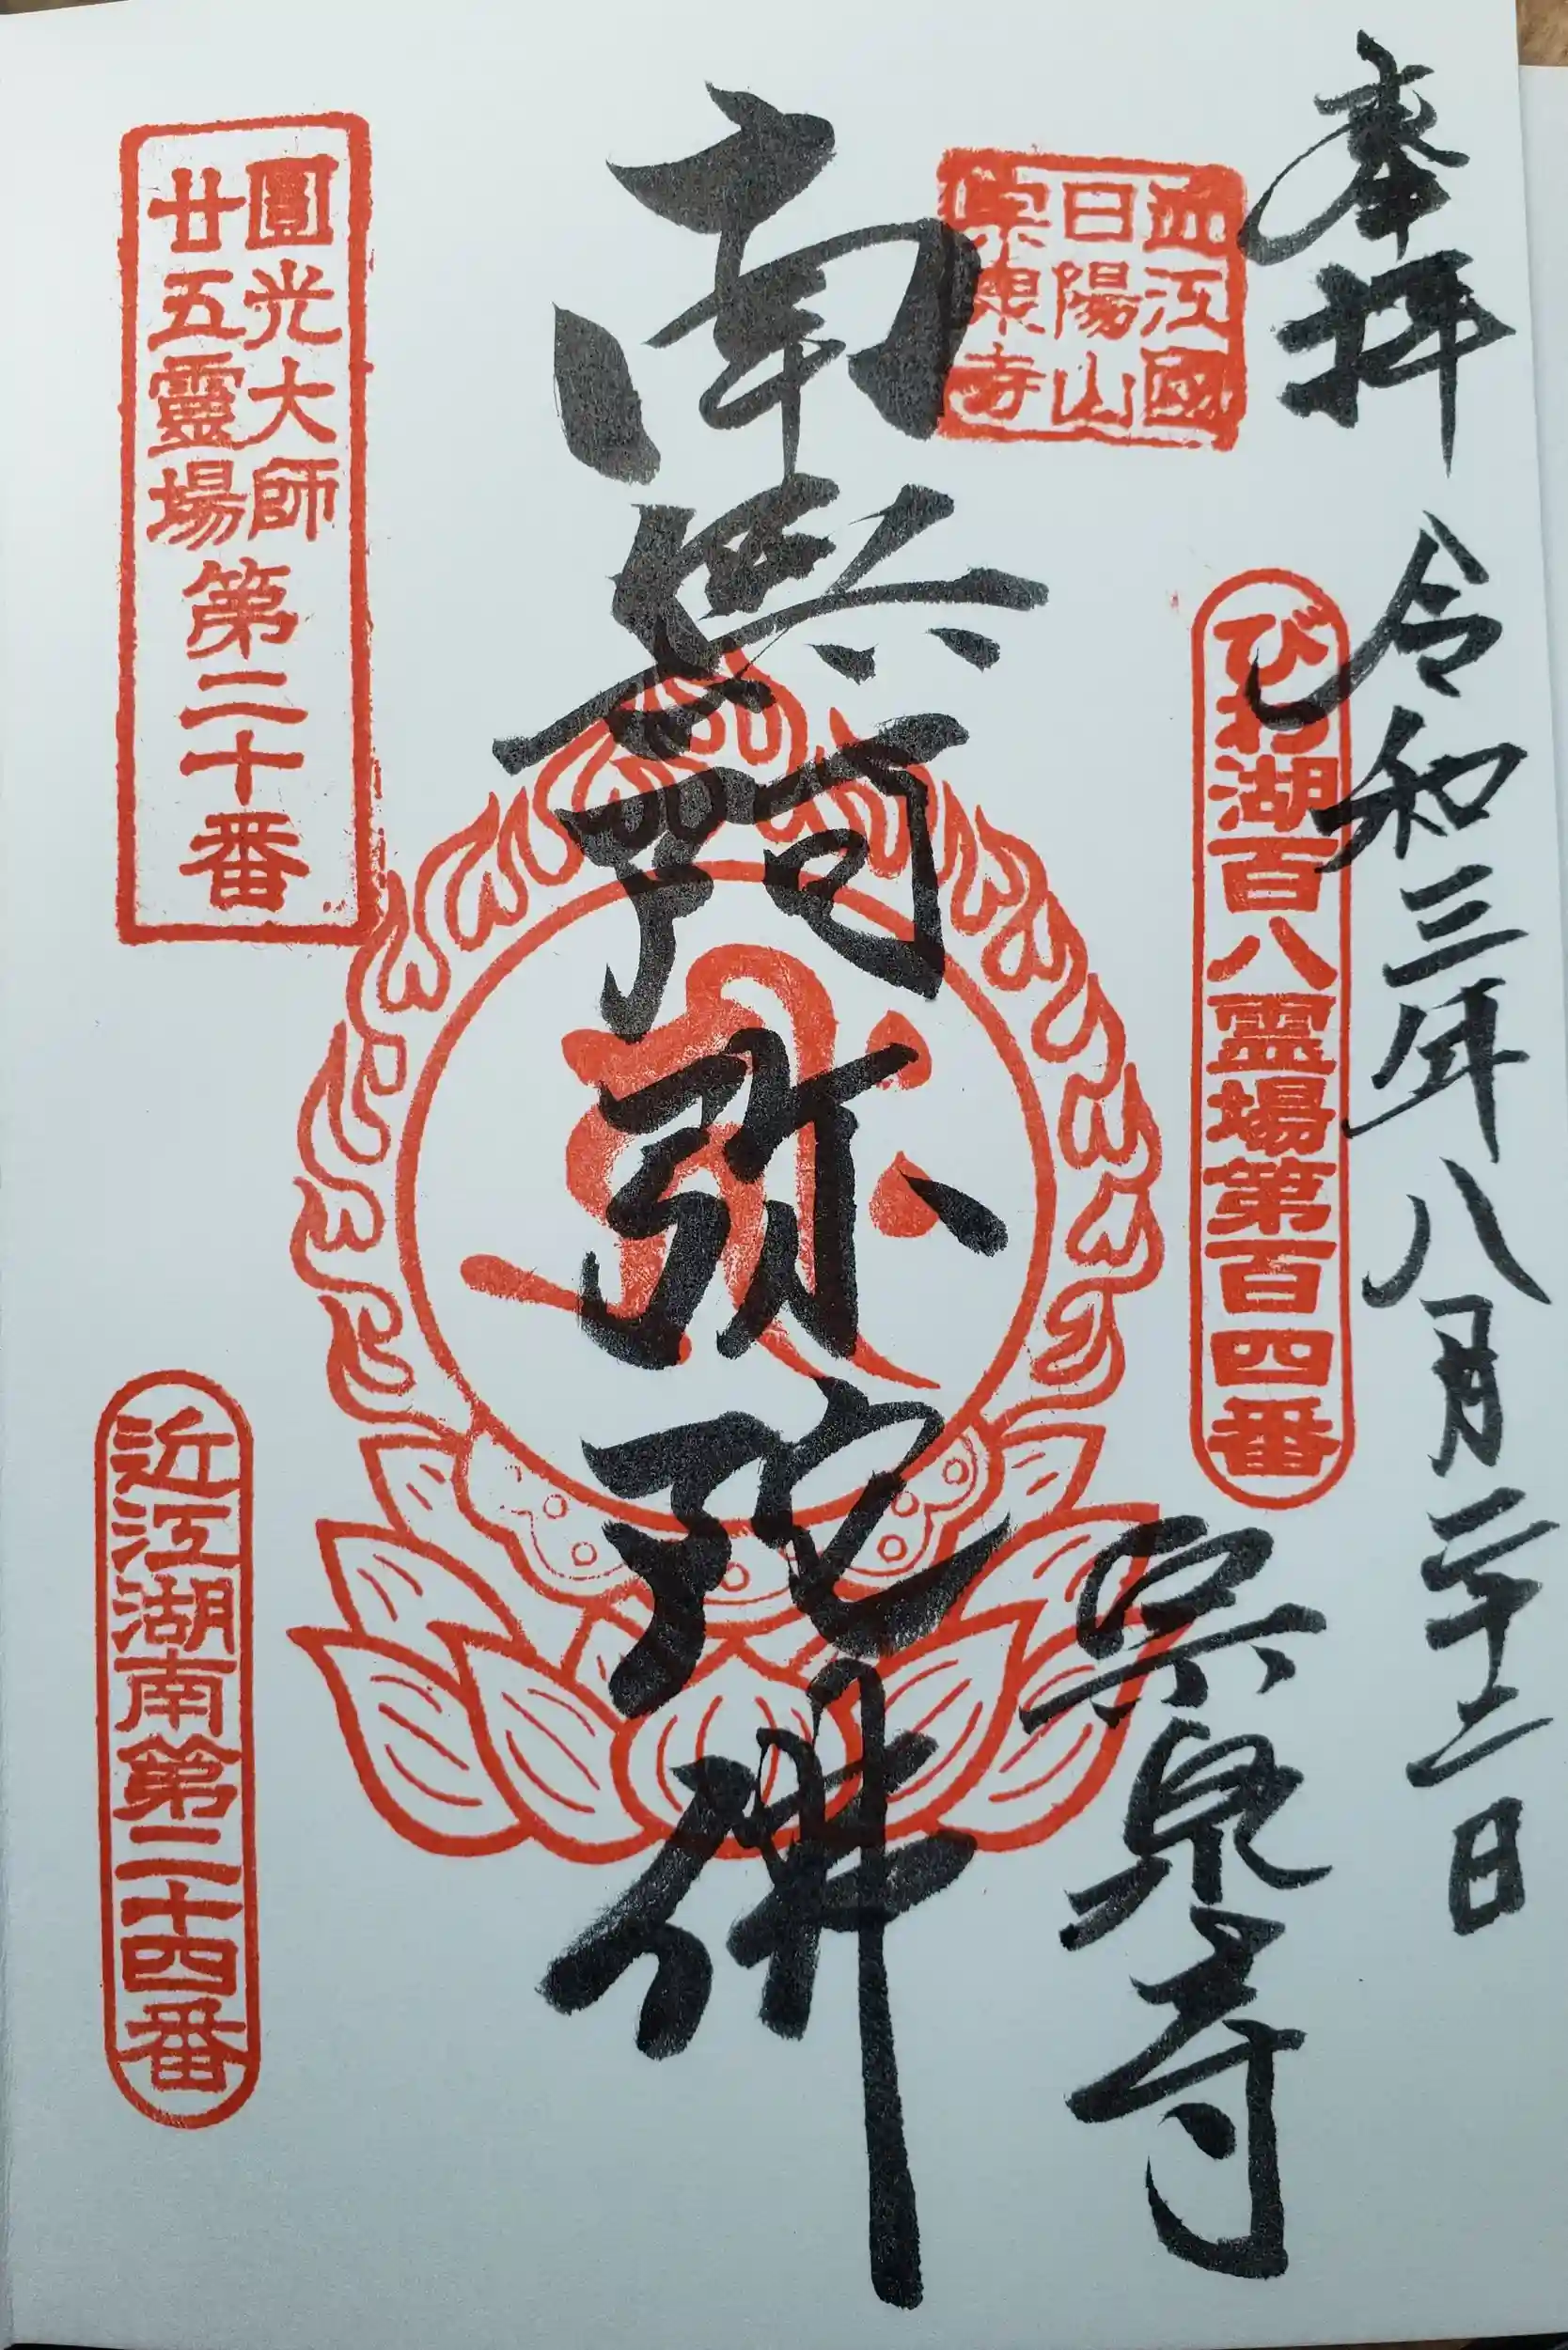 奉拝
令和三年八月二十二日
びわ湖百八霊場第百四番
宗泉寺
近江國
日陽山
宗泉寺
南無阿弥陀佛
圓光大師
廿五靈場
第二十番
近江湖南第二十四番